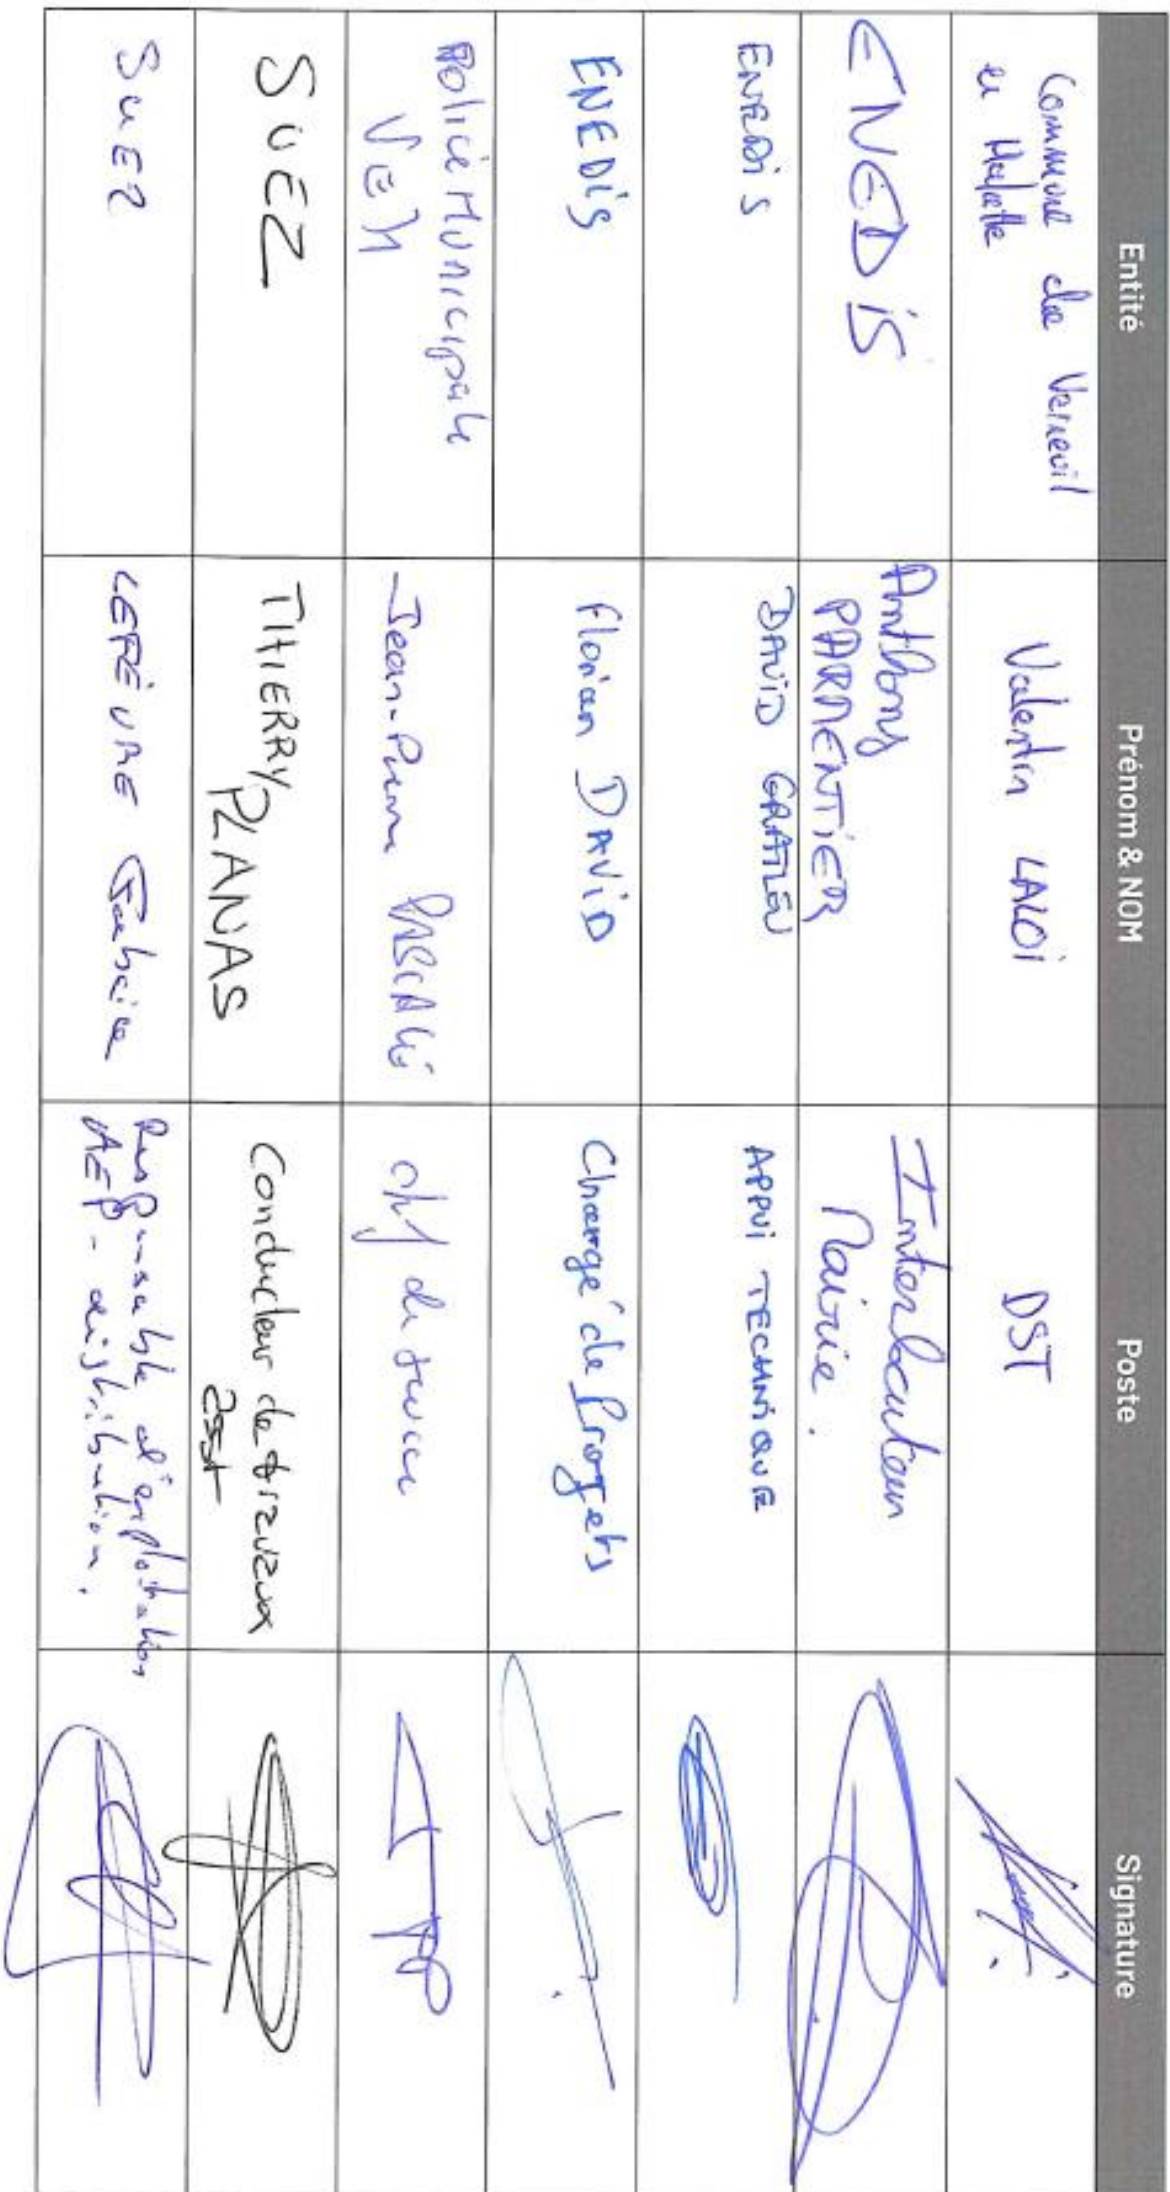 Entité Prénom & NOM Poste Signature
Commune de Verneuil
en Halatte
Valentin LALOI
DST
ENEDIS
Anthony
PARMENTIER
Interlocuteur
Mairie.
ENEDIS
DAVID
APPUI TECHNIQUE
ENEDIS
Florian DAVID
Chargé de Projets
Police Municipale
VEH
Jean-Pierre
chef de service
SUEZ
THIERRY
PLANAS
Conducteur de travaux
asst
SUEZ
LEFÈVRE
Responsable d'exploitation
AEP - distribution.